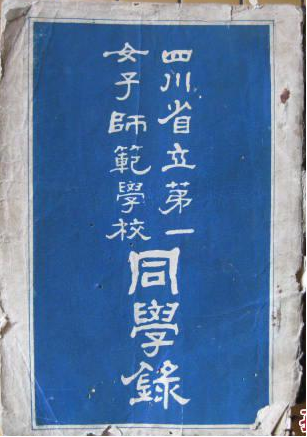 四川省立第一
女子師範學校
同學錄